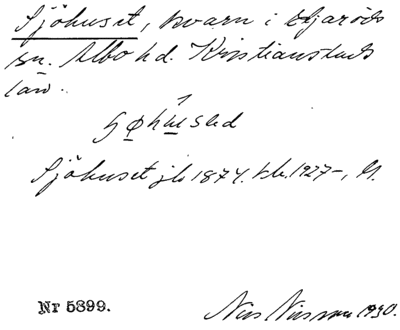 Sjöhuset, kvarn i Eljaröds
sn. Albo hd. Kristianstads
län.
Sjöhuset jb 1874. kb. 1927-, G.
Nr 5399. Nils Nilsson 1930.